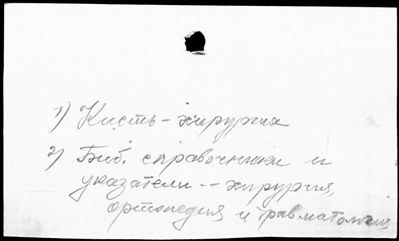 1) Кисть - хирургия
2) Биб. справочники и
указатели -- хирургия,
ортопедия и травматология